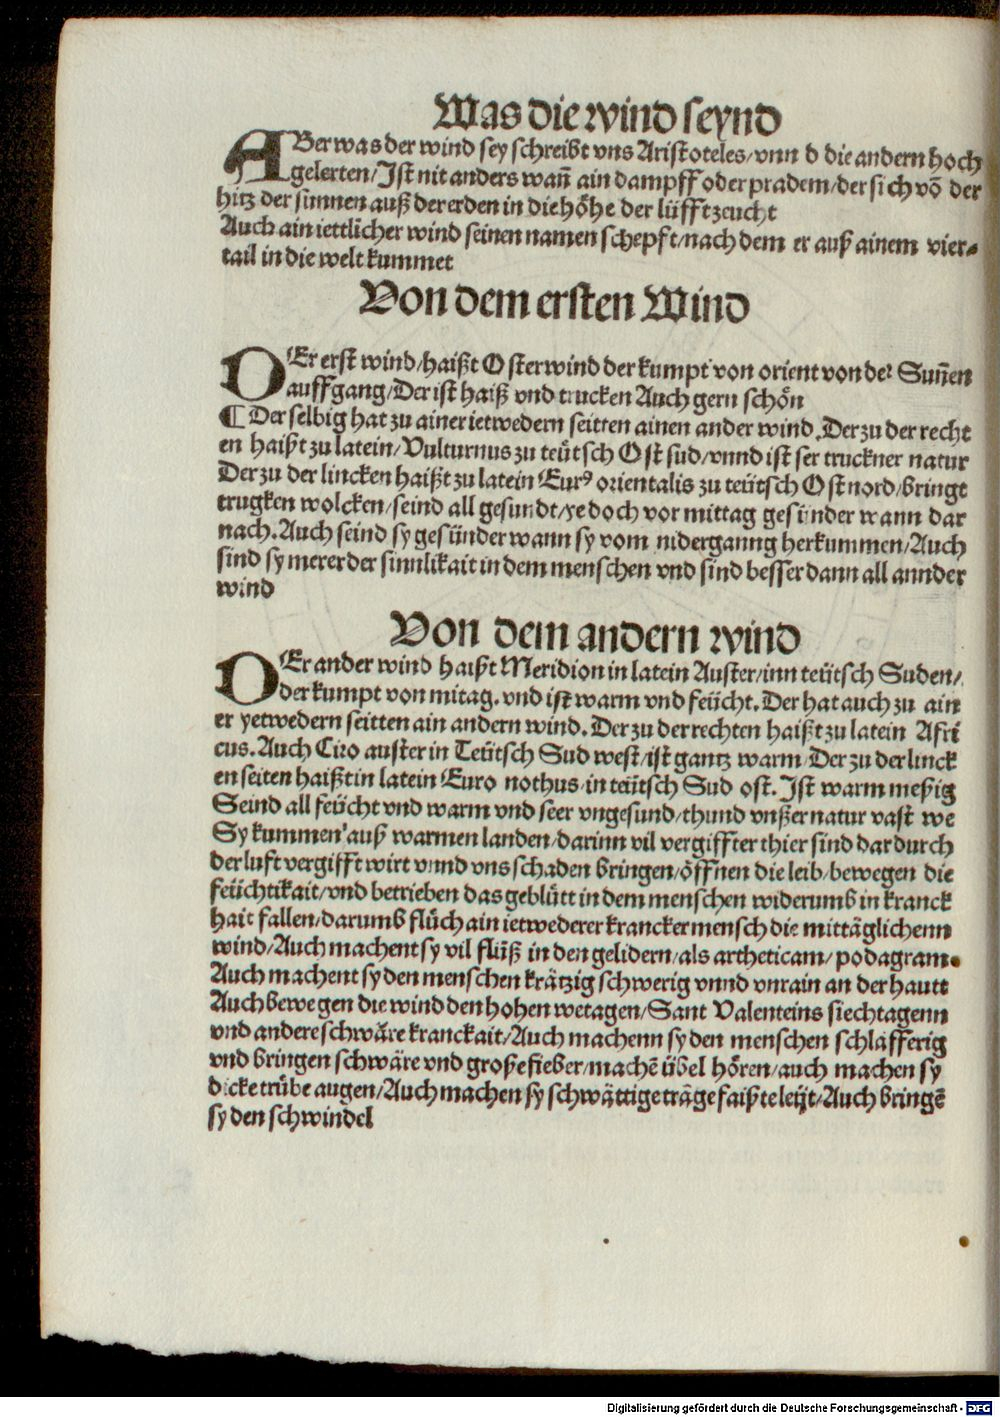 Was die wind seynd
ABer was der wind sey schreibt vns Aristoteles/vnn d die andern hoch
gelerten/Ist nit anders wañ ain dampff oder pradem/der sich võ der
hitz der sunnen auß der erden in die höhe der lüfft zeucht
Auch ain iettlicher wind seinen namen schepft/nach dem er auß ainem vier⸗
tail in die welt kummet
Von dem ersten Wind
DEr erst wind/haißt Osterwind der kumpt von orient von der Suñen
auffgang/Der ist haiß vnd trucken Auch gern schön
¶ Der selbig hat zu ainer ietwedern seitten ainen ander wind. Der zu der recht
en haißt zu latein/Vulturnus zu teütsch Ost sud/vnnd ist ser truckner natur
Der zu der lincken haißt zu latein Eurꝰ orientalis zu teütsch Ost nord/bringt
trugken wolcken/seind all gesundt/yedoch vor mittag gesünder wann dar
nach. Auch seind sy gesünder wann sy vom niderganng herkummen/Auch
sind sy merer der sinnlikait in dem menschen vnd sind besser dann all annder
wind
Von dem andern wind
DEr ander wind haißt Meridion in latein Auster/inn teütsch Suden/
der kumpt von mitag. vnd ist warm vnd feücht. Der hat auch zu ain
er yetwedern seitten ain andern wind. Der zu der rechten haißt zu latein Afri
cus. Auch Ciro auster in Teütsch Sud west/ist gantz warm Der zu der linck
en seiten haißt in latein Euro nothus/in teütsch Sud ost. Ist warm meßig
Seind all feücht vnd warm vnd seer vngesund/thund vnßer natur vast we
Sy kummen auß warmen landen/darinn vil vergiffter thier sind dardurch
der luft vergifft wirt vnnd vns schaden bringen/öffnen die leib/bewegen die
feüchtikait/vnd betrieben das geblütt in dem menschen widerumb in kranck
hait fallen/darumb flüch ain ietwederer krancker mensch die mittäglichenn
wind/Auch machent sy vil flüß in den gelidern/als artheticam/podagram.
Auch machent sy den menschen krätzig schwerig vnnd vnrain an der hautt
Auch bewegen die wind den hohen wetagen/Sant Valenteins siechtagenn
vnd andere schwäre kranckait/Auch machenn sy den menschen schläfferig
vnd bringen schwäre vnd große fieber/machẽ übel hören/auch machen sy
dicke trübe augen/Auch machen sy schwättige träge faißte leüt/Auch bringẽ
sy den schwindel
Digitalisierung gefördert durch die Deutsche Forschungsgemeinschaft - DFG